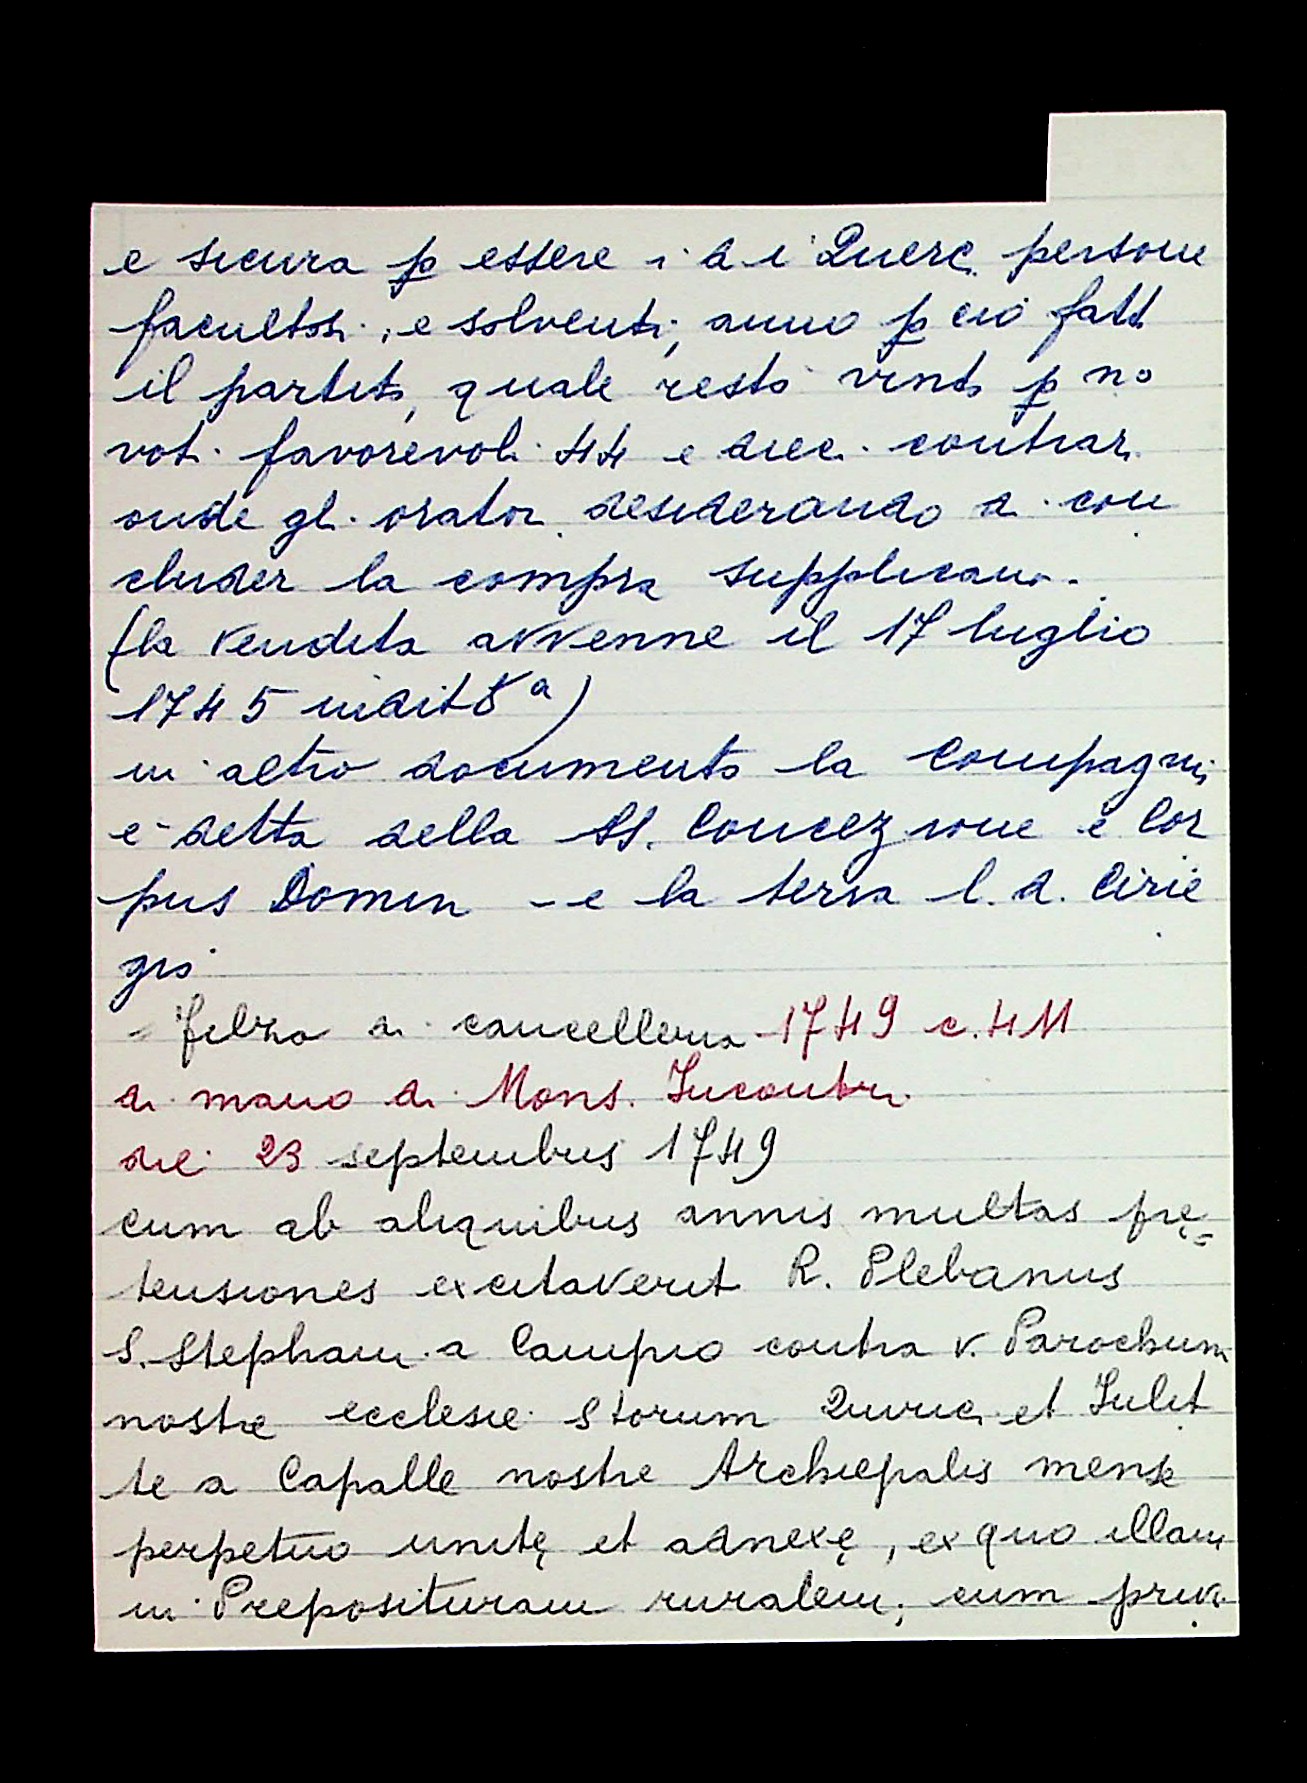 e sicura p essere i d i Querc. persone
facultosi, e solventi, anno p ciò fatt
il partito, quale restò vinto p no
voti favorevoli 44 e dieci contrari
onde gli oratori desiderando di con
cluder la compra supplicano.
(la vendita avvenne il 17 luglio
1745 indit 8ª)
in altro documento la compagni
è detta della SS. Concezione e Cor
pus Domini - e la terra l. d. Cirie
gio
filza di cancelleria 1749 c. 411
di mano di Mons. Incontri
die 23 septembris 1749
cum ab aliquibus annis multas prę=
tensiones excitaverit R. Plebanus
S. Stephani a Campio contra v. Parochum
nostre ecclesie Storum Quirici et Julit
te a Capalle nostre Archiepalis mense
perpetuo unitę et adnexę, ex quo illam
in Preposituram ruralem, cum priv.